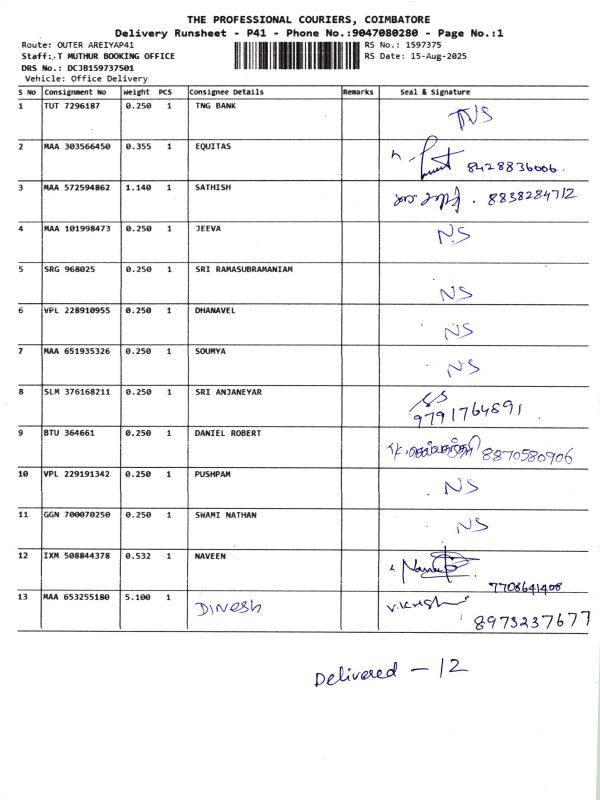 THE PROFESSIONAL COURIERS, COIMBATORE
Delivery Runsheet - P41 - Phone No.:9047080280 - Page No.:1
Route: OUTER AREIYAP41 RS No.: 1597375
Staff: T MUTHUR BOOKING OFFICE RS Date: 15-Aug-2025
DRS No.: DCJB159737501
Vehicle: Office Delivery
S No Consignment No Weight PCS Consignee Details Remarks Seal & Signature
1 TUT 7296187 0.250 1 TNG BANK
2 MAA 303566450 0.355 1 EQUITAS 8428836006.
3 MAA 572594862 1.140 1 SATHISH 8838284712
4 MAA 101998473 0.250 1 JEEVA NS
5 SRG 968025 0.250 1 SRI RAMASUBRAMANIAM NS
6 VPL 228910955 0.250 1 DHANAVEL NS
7 MAA 651935326 0.250 1 SOUMYA NS
8 SLM 376168211 0.250 1 SRI ANJANEYAR 9791764891
9 BTU 364661 0.250 1 DANIEL ROBERT 8870580906
10 VPL 229191342 0.250 1 PUSHPAM NS
11 GGN 700070250 0.250 1 SWAMI NATHAN NS
12 IXM 508844378 0.532 1 NAVEEN 7708641408
13 MAA 653255180 5.100 1 DINESH 8973237677
Delivered - 12